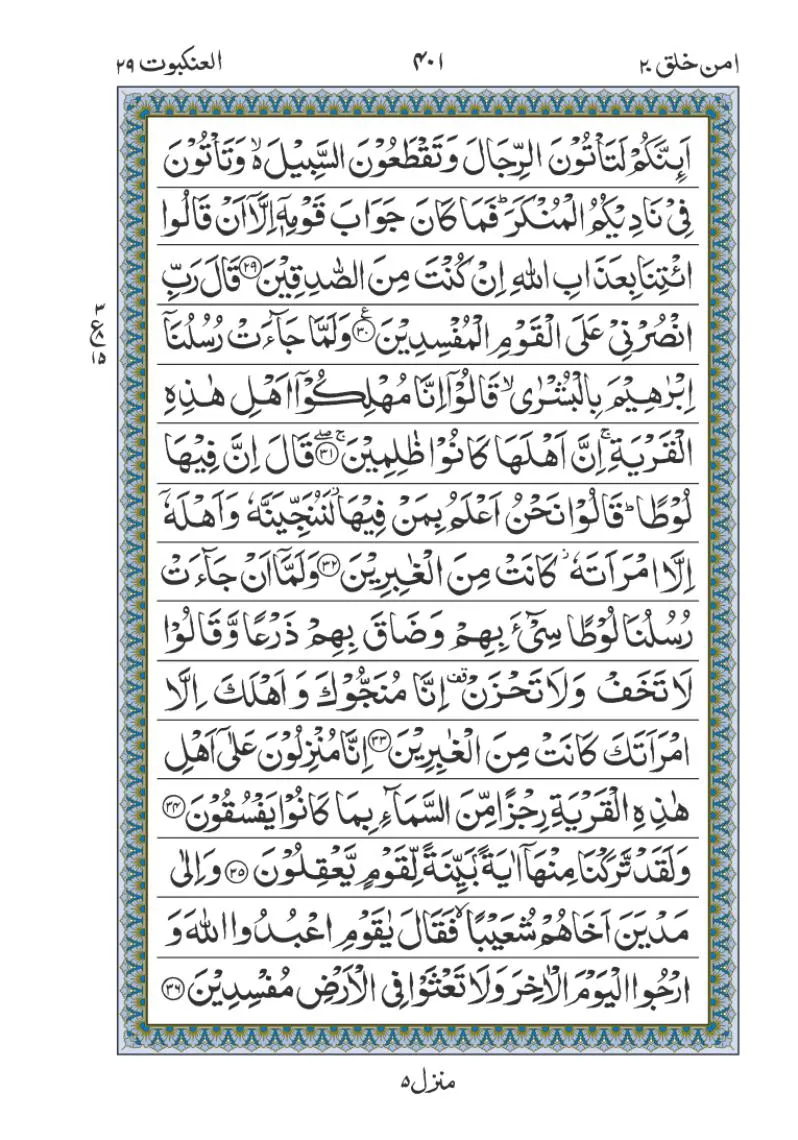 امن خلق ۲۰ ۴۰۱ العنکبوت ۲۹
اَىِٕنَّكُمْ لَتَاْتُوْنَ الرِّجَالَ وَتَقْطَعُوْنَ السَّبِيْلَ ۙ۬ وَتَاْتُوْنَ
فِىْ نَادِيْكُمُ الْمُنْكَرَ ؕ فَمَا كَانَ جَوَابَ قَوْمِهٖۤ اِلَّاۤ اَنْ قَالُوا
ائْتِنَا بِعَذَابِ اللّٰهِ اِنْ كُنْتَ مِنَ الصّٰدِقِيْنَ ۲۹ قَالَ رَبِّ
انْصُرْنِىْ عَلَى الْقَوْمِ الْمُفْسِدِيْنَ ۳۰ ع وَلَمَّا جَآءَتْ رُسُلُنَاۤ
اِبْرٰهِيْمَ بِالْبُشْرٰى ۙ قَالُوْۤا اِنَّا مُهْلِكُوْۤا اَهْلِ هٰذِهِ
الْقَرْيَةِ ۚ اِنَّ اَهْلَهَا كَانُوْا ظٰلِمِيْنَ ۚ ۖ ۳۱ قَالَ اِنَّ فِيْهَا
لُوْطًا ؕ قَالُوْا نَحْنُ اَعْلَمُ بِمَنْ فِيْهَا ۫ لَنُنَجِّيَنَّهٗ وَاَهْلَهٗۤ
اِلَّا امْرَاَتَهٗ ۫ كَانَتْ مِنَ الْغٰبِرِيْنَ ۳۲ وَلَمَّاۤ اَنْ جَآءَتْ
رُسُلُنَا لُوْطًا سِىْٓءَ بِهِمْ وَضَاقَ بِهِمْ ذَرْعًا وَّقَالُوْا
لَا تَخَفْ وَلَا تَحْزَنْ قف اِنَّا مُنَجُّوْكَ وَاَهْلَكَ اِلَّا
امْرَاَتَكَ كَانَتْ مِنَ الْغٰبِرِيْنَ ۳۳ اِنَّا مُنْزِلُوْنَ عَلٰٓى اَهْلِ
هٰذِهِ الْقَرْيَةِ رِجْزًا مِّنَ السَّمَآءِ بِمَا كَانُوْا يَفْسُقُوْنَ ۳۴
وَلَقَدْ تَّرَكْنَا مِنْهَاۤ اٰيَةًۢ بَيِّنَةً لِّقَوْمٍ يَّعْقِلُوْنَ ۳۵ وَاِلٰى
مَدْيَنَ اَخَاهُمْ شُعَيْبًا ۙ فَقَالَ يٰقَوْمِ اعْبُدُوا اللّٰهَ وَ
ارْجُوا الْيَوْمَ الْاٰخِرَ وَلَا تَعْثَوْا فِى الْاَرْضِ مُفْسِدِيْنَ ۳۶
۳
ع ۸
۱۵
منزل ۵